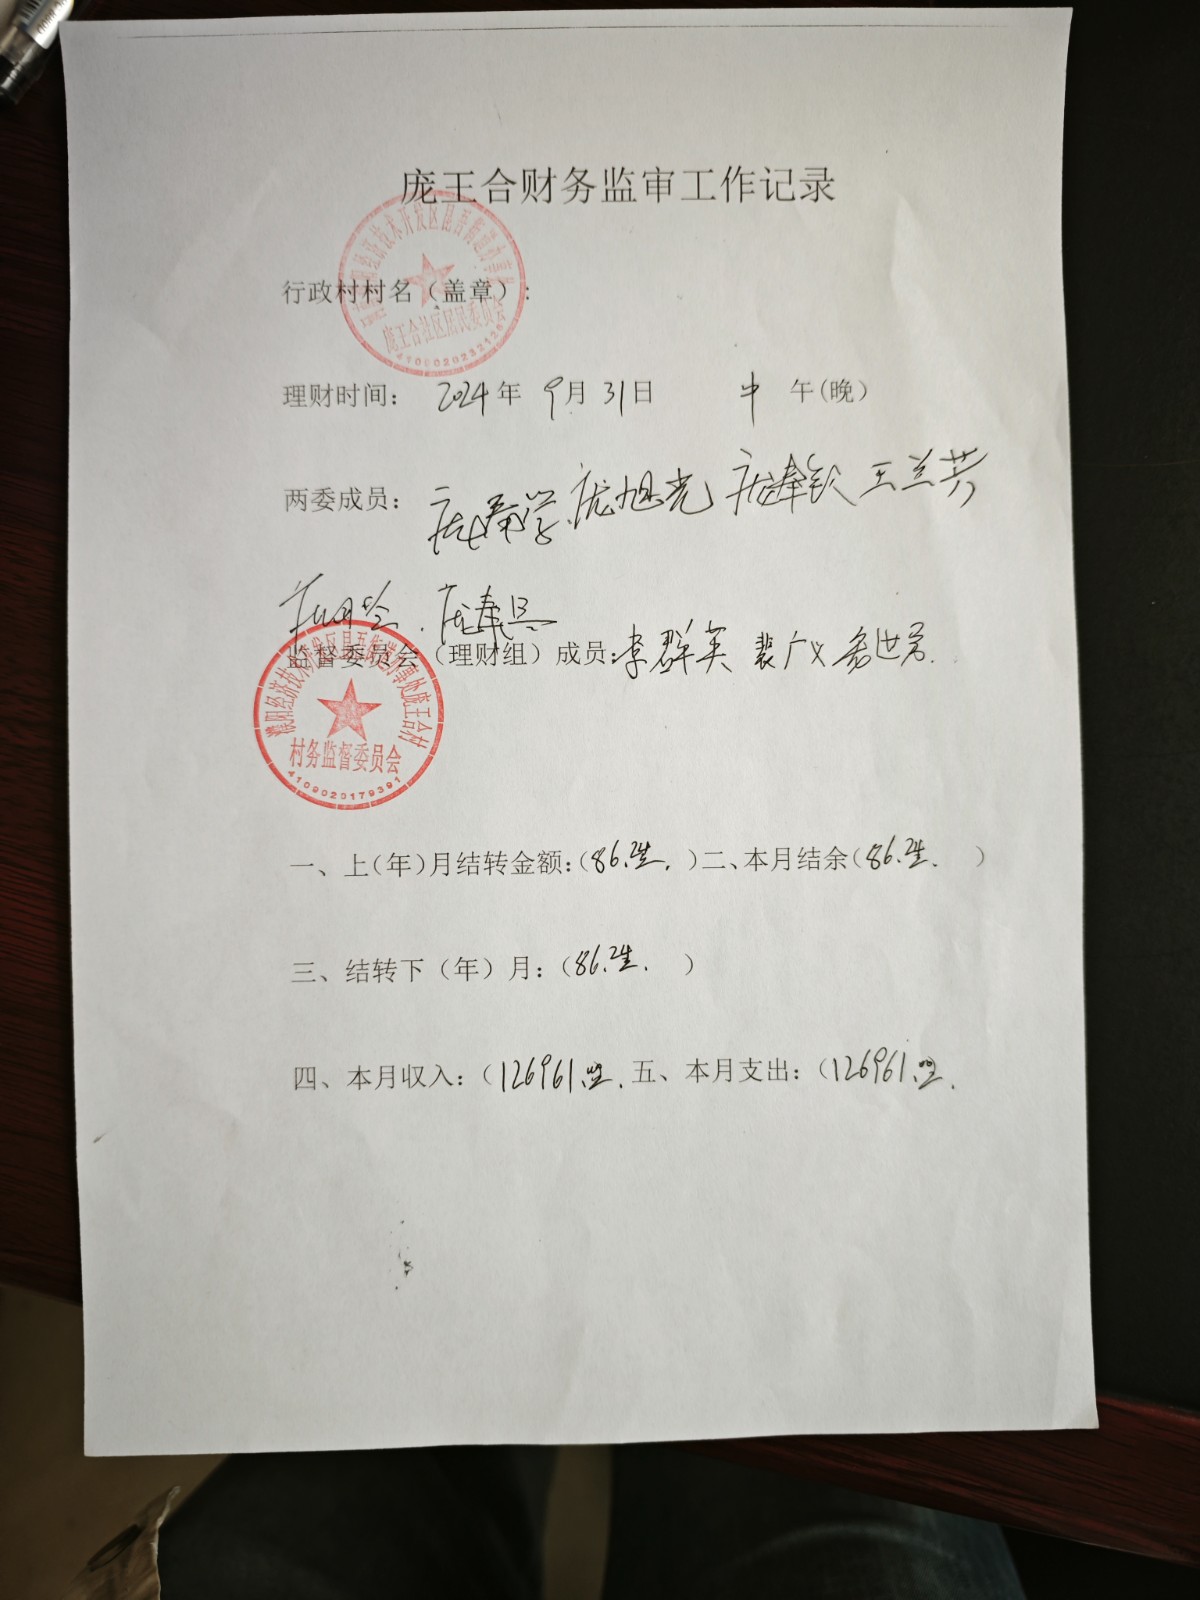 庞王合财务监审工作记录
行政村村名（盖章）：
庞王合社区居民委员会
4109020232126
理财时间： 2024年 9月 31日 中 午(晚）
两委成员： 庞旭光 庞奉钦 王兰芳
监督委员会（理财组）成员：李群英 裴广义
濮阳经济技术开发区昆吾街道办事处庞王合村
村务监督委员会
4109020179391
一、上(年）月结转金额：(86.2 ）二、本月结余(86.2 ）
三、结转下（年）月：(86.2 ）
四、本月收入：(126961. 五、本月支出：(126961.